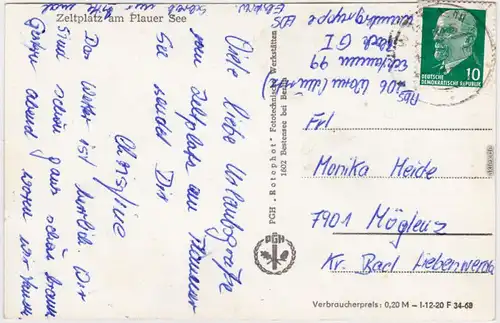 Zeltplatz am Plauer See
Viele liebe Urlaubsgrüße
vom Zeltplatz am Plauer
See sendet Dir
Christine
Das Wetter ist herrlich. Wir
sind schon ganz schön braun.
Gestern abend waren wir
PGH „Rotophot" Fototechnische Werkstätten
1602 Bestensee bei Berlin
PGH
DEUTSCHE
DEMOKRATISCHE REPUBLIK
10
Abs
Frl
Monika Heide
7901 Möglenz
Kr. Bad Liebenwerda
Verbraucherpreis: 0,20 M – I-12-20 F 34-68